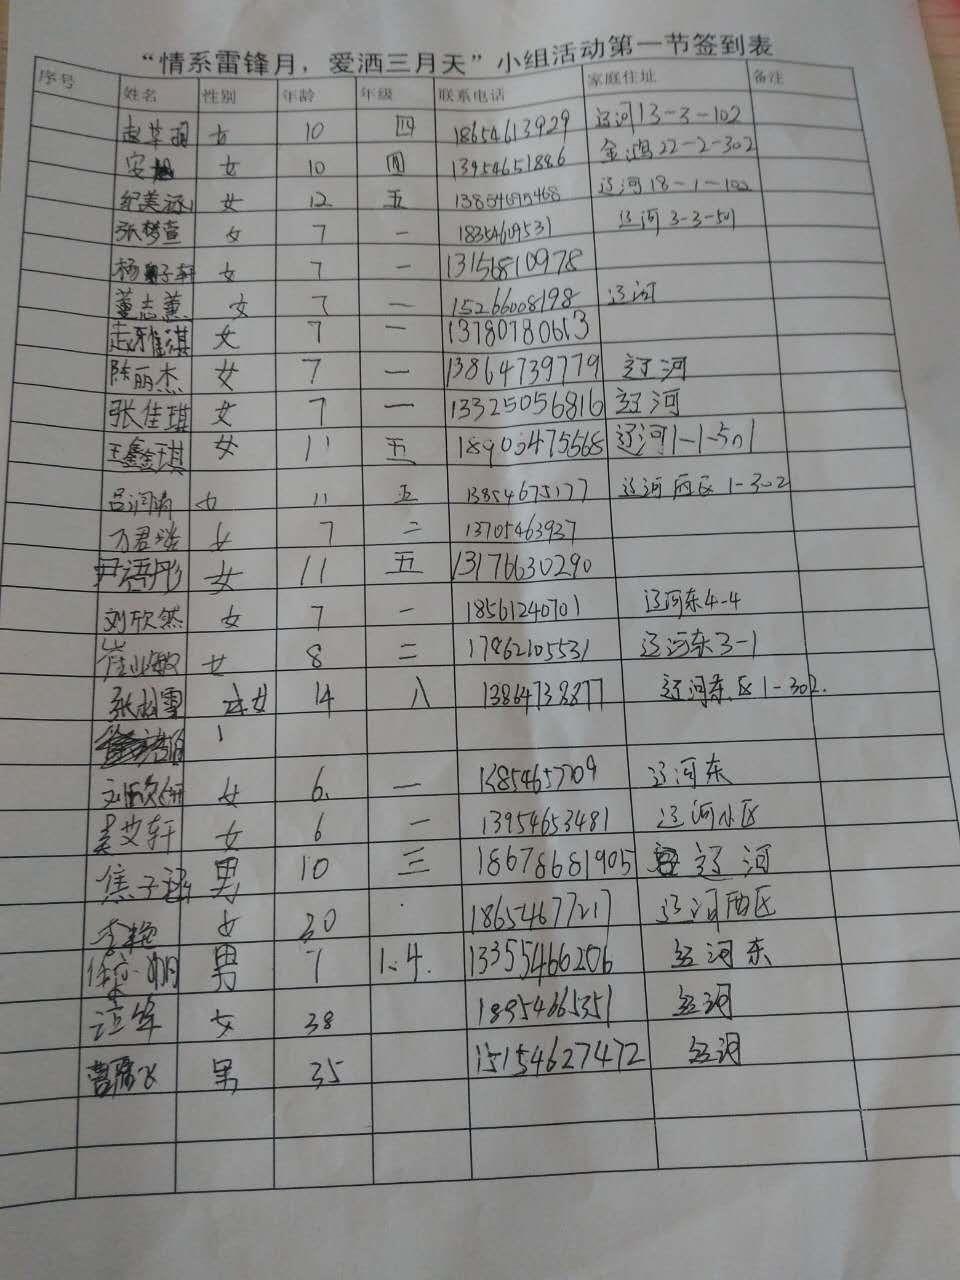 “情系雷锋月，爱洒三月天”小组活动第一节签到表
序号 姓名 性别 年龄 年级 联系电话 家庭住址 备注
女 10 四 18654613929 辽河13-3-102
安 女 10 四 13954651886 金鸿22-2-302
纪美 女 12 五 辽河18-1-102
张梦萱 女 7 一 辽河3-3-501
杨 子轩 女 7 一 13156810978
董志薰 女 7 一 15266008198 辽河
赵雅淇 女 7 一 13780780613
陈丽杰 女 7 一 13864739779 辽河
张佳琪 女 7 一 13325056816 辽河
王鑫琪 女 11 五 辽河1-1-501
吕润 女 11 五 13854675177 辽河西区1-302
万君 女 7 二 13705463937
尹语彤 女 11 五 13176630290
刘欣然 女 7 一 18561240701 辽河东4-4
崔 敏 女 8 二 17862105531 辽河东3-1
张 雪 女 14 八 13864738877 辽河东区1-302.
刘 女 6 一 13854657709 辽河东
艾轩 女 6 一 13954653481 辽河小区
焦子 男 10 三 18678681905 辽河
李艳 女 30 18654677217 辽河西区
男 7 1.4. 13355466206 辽河东
女 38 18954665351 辽河
男 35 15154627472 辽河